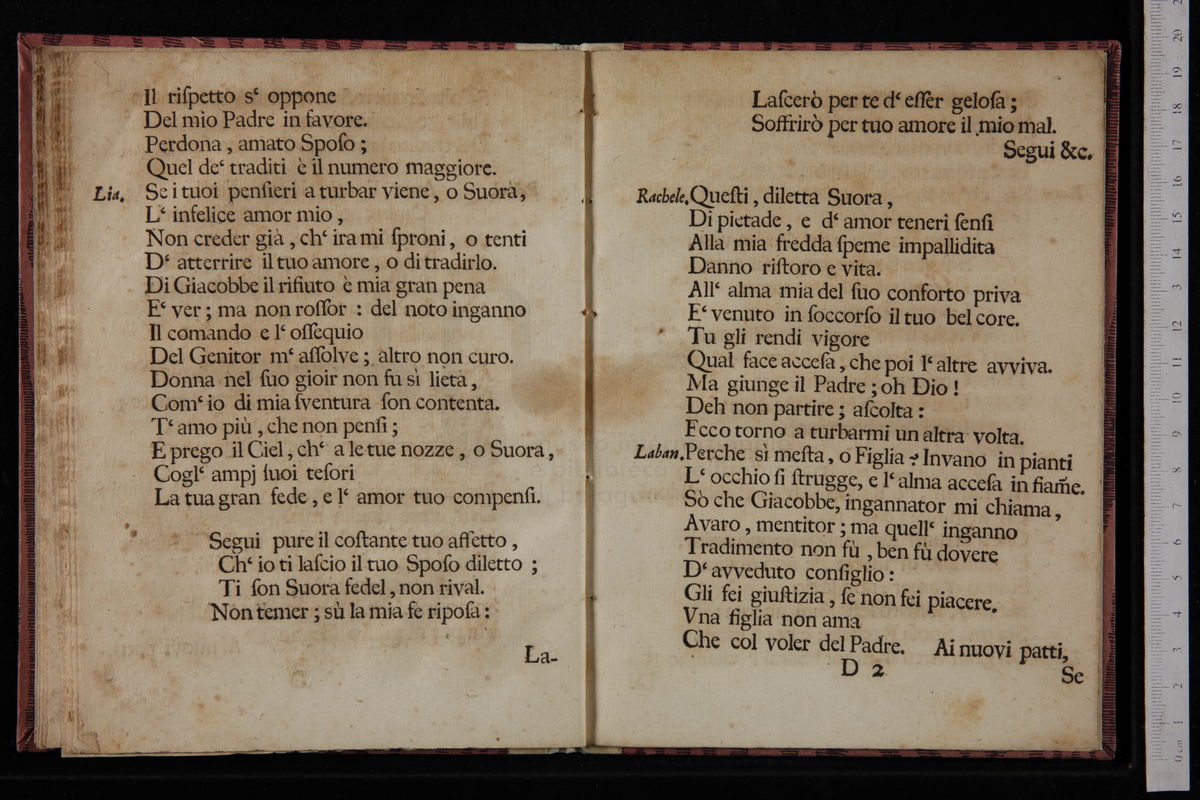 Il riſpetto s‘ oppone
Del mio Padre in favore.
Perdona , amato Spoſo ;
Quel de‘ traditi è il numero maggiore.
Lia. Se i tuoi penſieri a turbar viene , o Suora ,
L‘ infelice amor mio ,
Non creder già , ch‘ ira mi ſproni , o tenti
D‘ atterrire il tuo amore , o di tradirlo.
Di Giacobbe il rifiuto è mia gran pena
E‘ ver ; ma non roſſor : del noto inganno
Il comando e l‘ oſſequio
Del Genitor m‘ aſſolve ; altro non curo.
Donna nel ſuo gioir non fu sì lieta ,
Com‘ io di mia ſventura ſon contenta.
T‘ amo più , che non penſi ;
E prego il Ciel , ch‘ a le tue nozze , o Suora ,
Cogl‘ ampj ſuoi teſori
La tua gran fede , e l‘ amor tuo compenſi.
Segui pure il coſtante tuo affetto ,
Ch‘ io ti laſcio il tuo Spoſo diletto ;
Ti ſon Suora fedel , non rival.
Non temer ; sù la mia fe ripoſa :
La-
Laſcerò per te d‘ eſſer geloſa ;
Soffrirò per tuo amore il mio mal.
Segui &c.
Rachele. Queſti , diletta Suora ,
Di pietade , e d‘ amor teneri ſenſi
Alla mia fredda ſpeme impallidita
Danno riſtoro e vita.
All‘ alma mia del ſuo conforto priva
E‘ venuto in ſoccorſo il tuo bel core.
Tu gli rendi vigore
Qual face acceſa , che poi l‘ altre avviva.
Ma giunge il Padre ; oh Dio !
Deh non partire ; aſcolta :
Ecco torno a turbarmi un altra volta.
Laban. Perche sì meſta , o Figlia ? Invano in pianti
L‘ occhio ſi ſtrugge, e l‘ alma acceſa in fiam̃e.
Sò che Giacobbe, ingannator mi chiama ,
Avaro , mentitor ; ma quell‘ inganno
Tradimento non fù , ben fù dovere
D‘ avveduto conſiglio :
Gli fei giuſtizia , ſe non fei piacere.
Vna figlia non ama
Che col voler del Padre. Ai nuovi patti,
D 2
Se